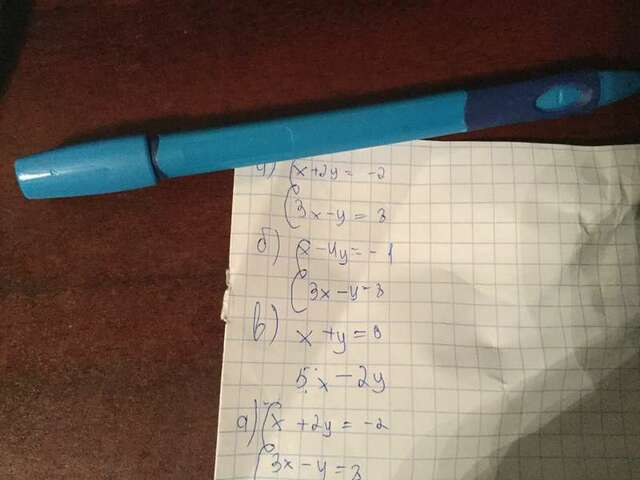 а) x+2y = -2
3x-y = 3
б) x-4y=-1
3x-y=3
в) x+y=0
5x-2y
а) x+2y = -2
3x-y=3